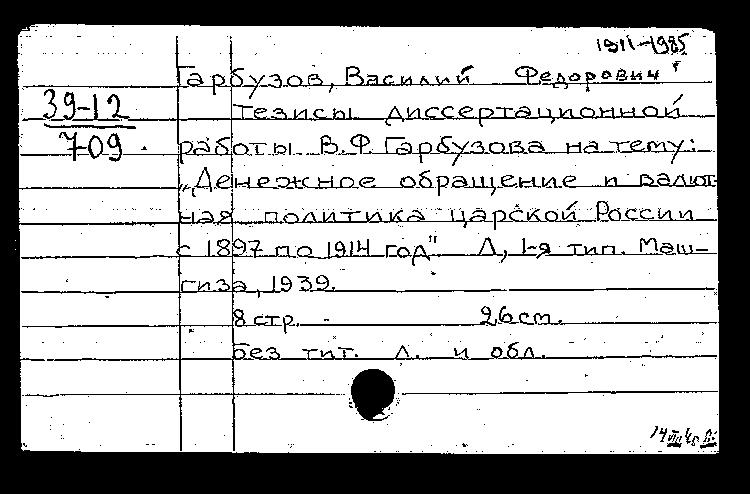 1911-1985
Гарбузов, Василий Федорович
39-12
709.
Тезисы диссертационной
работы В.Ф. Гарбузова на тему:
„Денежное обращение и валют-
ная политика царской России
с 1897 по 1914 год". Л, 1-я тип. Маш-
гиза, 1939.
8 стр. - 26 см.
без тит. л. и обл.